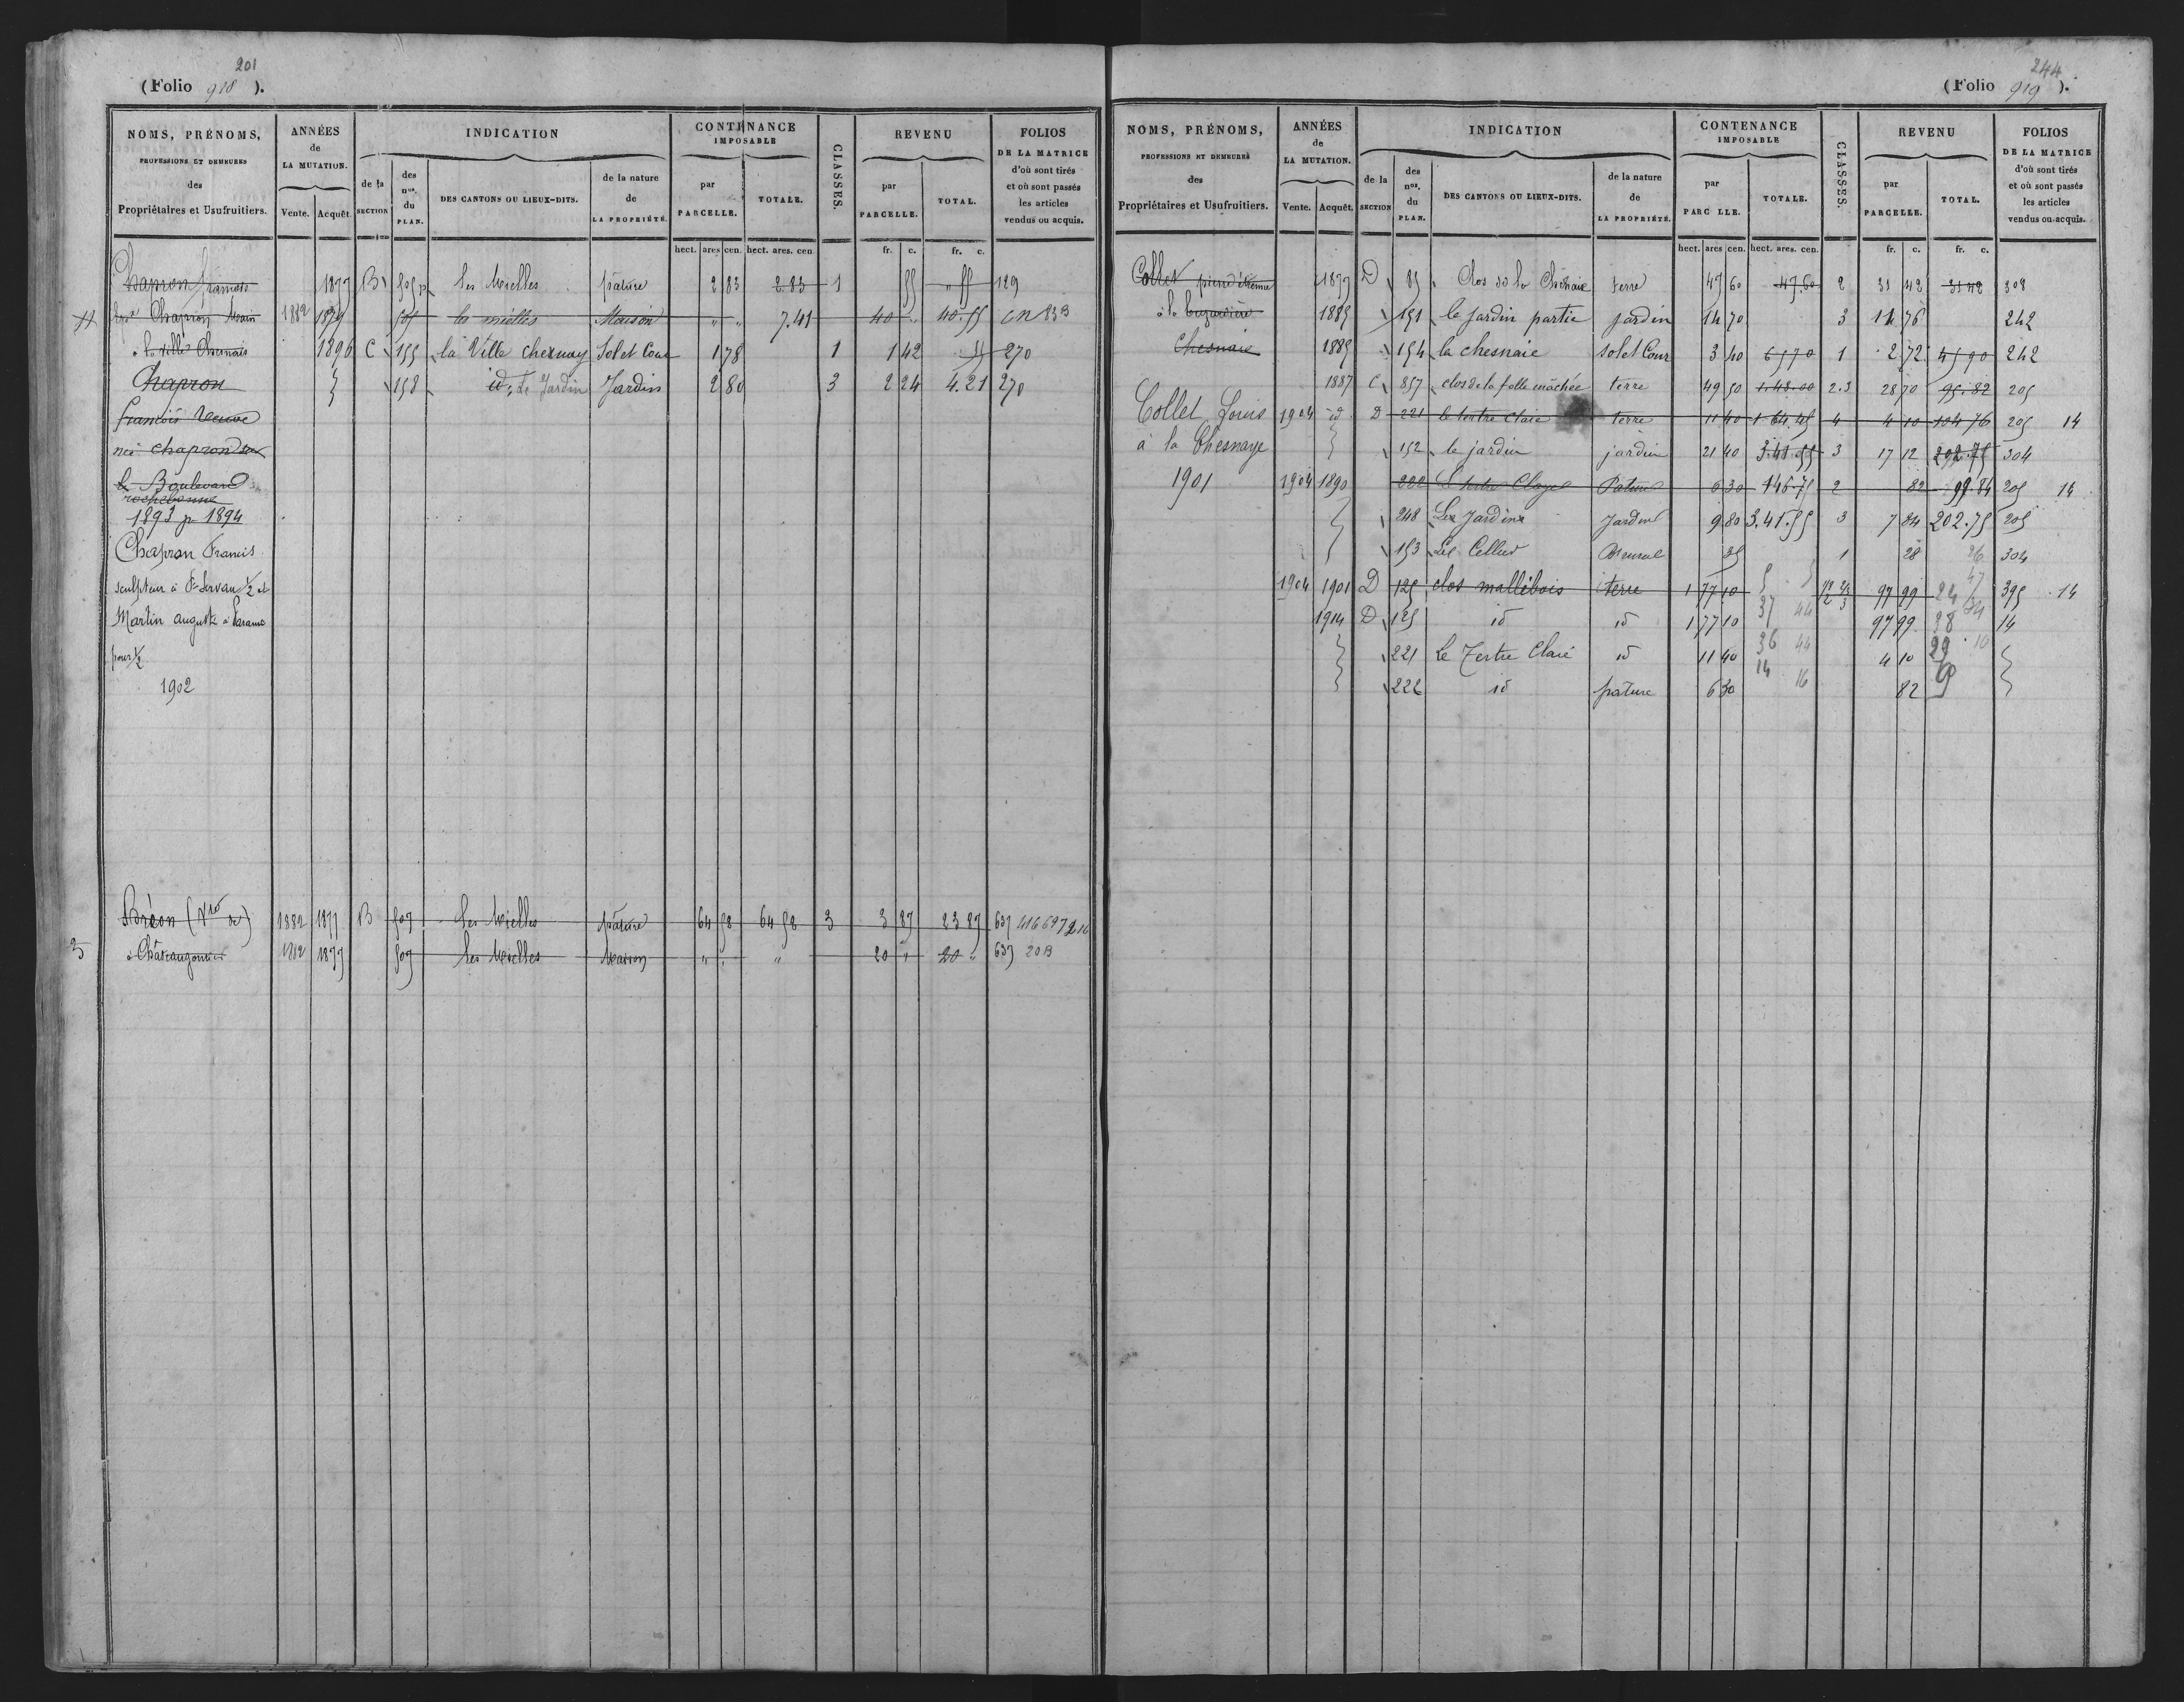 201
(Folio 918 ).
NOMS, PRÉNOMS,
PROFESSIONS ET DEMEURES
des
Propriétaires et Usufruitiers.
ANNÉES
de
LA MUTATION.
Vente. Acquêt.
INDICATION
de la
SECTION
des
nos.
du
PLAN.
DES CANTONS OU LIEUX-DITS.
de la nature
de
LA PROPRIÉTÉ.
CONTENANCE
IMPOSABLE
par
PARCELLE.
TOTALE.
CLASSES.
REVENU
par
PARCELLE.
TOTAL.
FOLIOS
DE LA MATRICE
d'où sont tirés
et où sont passés
les articles
vendus ou acquis.
hect. ares cen. hect. ares. cen fr. c. fr. c.
Chapron françois 1877 B 505 p les Mielles pâture 2 83 2.83 1 55 " 55 129
Chapron 1882 1879 505 les mielles Maison " " 7.41 40 " 40.55 CN 83B
à la ville Chesnais 1896 C 155 la Ville chesnay Sol et Cour 1 78 1 1 42 55 270
Chapron 158 id, Le Jardin Jardin 2 80 3 2 24 4.21 270
francois Veuve
née chapron
le Boulevard
rochebonne
1893 p 1894
Chapron Francis
sculpteur à St Servan 1/2 et
Martin auguste à Paramé
pour 1/2
1902
Bréon (Vve de) 1882 1877 B 507 Les Mielles pâture 64 58 64 58 3 3 87 23 87 637 416 697 216
3 à Châteaugontier 1882 1877 507 Les Mielles Maison " " " 20 " 20 " 637 20B
244
(Folio 919 ).
NOMS, PRÉNOMS,
PROFESSIONS ET DEMEURES
des
Propriétaires et Usufruitiers.
ANNÉES
de
LA MUTATION.
Vente. Acquêt.
INDICATION
de la
SECTION
des
nos.
du
PLAN.
DES CANTONS OU LIEUX-DITS.
de la nature
de
LA PROPRIÉTÉ.
CONTENANCE
IMPOSABLE
par
PARC LLE.
TOTALE.
CLASSES.
REVENU
par
PARCELLE.
TOTAL.
FOLIOS
DE LA MATRICE
d'où sont tirés
et où sont passés
les articles
vendus ou acquis.
hect. ares cen. hect. ares. cen. fr. c. fr. c.
Collet pierre étienne 1877 D 85 Clos de la Chênaie terre 47 60 47.60 2 31 42 31 42 308
à la 1885 151 le jardin partie jardin 14 70 3 11 76 242
Chesnaie 1885 154 la chesnaie sol et Cour 3 40 65 70 1 2 72 45 90 242
1887 C 857 clos de la folle mâchée terre 49 50 1.48.00 2.3 28 70 95.82 205
Collet Louis 1904 id D 221 le tertre Claie terre 11 40 1 64.45 4 4 10 104 76 205 14
à la Chesnaye 152 le jardin jardin 21 40 3.41.55 3 17 12 202.75 304
1901 1904 1890 222 Pature 6 30 146.75 2 82 99.84 205 14
248 Les Jardins Jardin 9 80 3.41.55 3 7 84 202.75 205
153 Le Cellier 35 1 28 26 304
1904 1901 D 125 clos mallébois terre 1 77 10 97 99 395 14
1914 D 125 id id 1 77 10 37 44 97 99 38 14
221 Le Tertre Claie id 11 40 36 44 4 10 29 10
222 id pâture 6 30 14 16 82 9